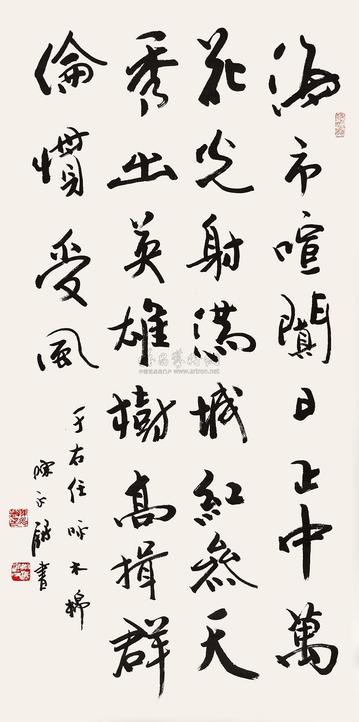 海市喧闐日正中萬
花光射滿城紅參天
秀出英雄樹高揖群
倫慣受風
于右任咏木棉
陳永鏘書
www.artron.net